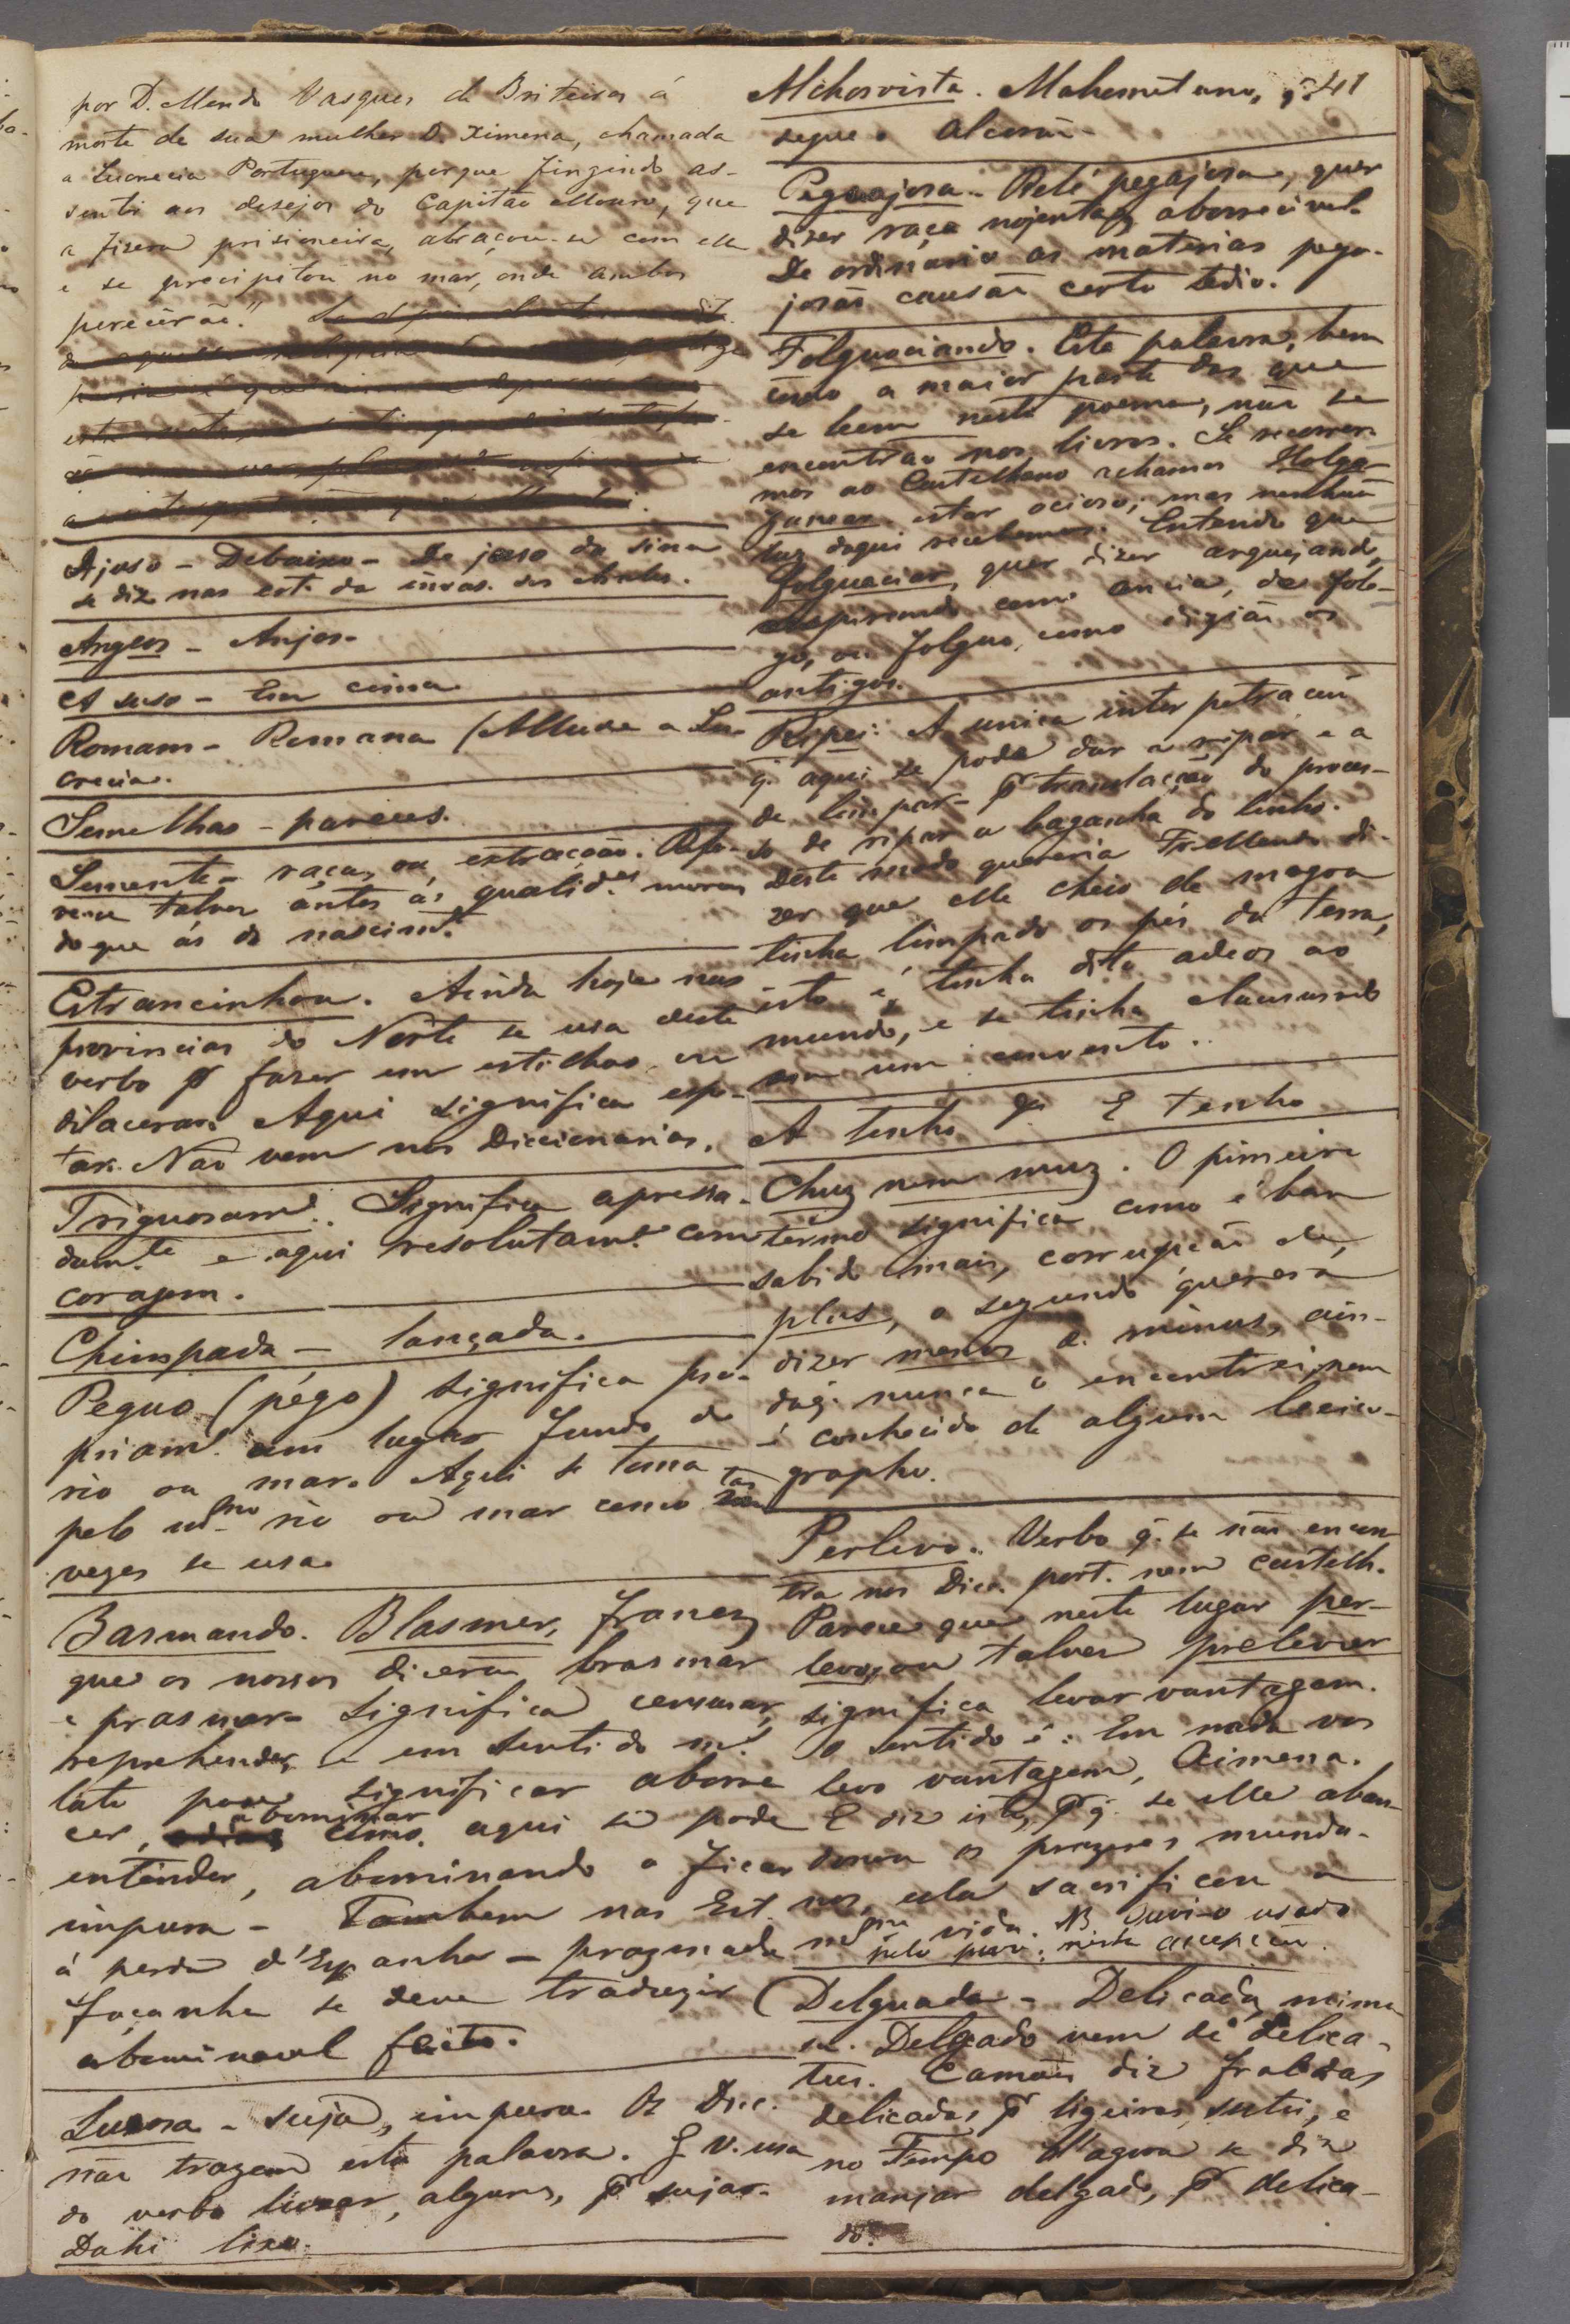 por D. Mendo Vasques de Briteiros á
morte de sua mulher D. Ximena, chamada
a Lucrecia Portugueza, porque fingindo as-
sentir aos desejos do Capitão Mouro, que
a fizera prisioneira, abraçou-se com elle
e se precipitou no mar, onde ambos
perecerão."
Ajuso - Debaixo - De juso da sina
se diz nas est. da invas. dos
Angeos - Anjos.
A suso - Em cima
Romam - Romana (Allude a Lu-
crecia.
Semelhas - pareces.
Semente - raça, ou extracção. Refe-
re-se talvez antes ás qualid.es moraes
do que ás do nascimt.o
Estrancinhou. Ainda hoje nas
provincias do Norte se usa deste
verbo pr fazer em estilhas, ou
dilacerar. Aqui significa
tar. Não vem nos Diccionarios.
Triguosamt.e Significa apressa-
damt.e e aqui resolutamt.e com
coragem.
Chimpada - lançada.
Peguo (pégo) significa pro-
priamt.e um lugar fundo do
rio ou mar. Aqui se toma
pelo mesmo rio ou mar como tas
vezes se usa.
Basmando. Blasmer, francez
que os nossos dicerão brasmar
e prasmar - significa censurar,
reprehender, e em sentido m.s
lato pode significar aborre
cer, abominar como aqui se pode
entender, abominando o ficar
impura - Tambem nas Est.
á perda d'Espanha - prazmada
façanha se deve traduzir
abominavel feito.
Luxosa - suja, impura. Os Dicc.
não trazem esta palavra. G V. usa
do verbo lixar, alguns, pr sujar.
Dahi lixo.
Alchorvista. Mahometano, q. 41
segue o alcorão.
Peguajosa. Relé pegajosa, quer
dizer raça nojenta, aborrecivel.
De ordinario as materias pega-
josas causão certo tedio.
Folguaciando. Esta palavra, bem
como a maior parte das que
se leem neste poema, não se
encontrão nos livros. Se recorrer-
mos ao Castelhano achamos Holga-
zanear estar ocioso; mas nenhuã
luz daqui recebemos. Entendo que
folguaciar, quer dizer arquejando,
respirando com ancia, de fole-
go, ou folguo, como dizião os
antigos.
Ripei: A unica interpetração
q. aqui se pode dar a ripar é a
de limpar - pr translação do proces-
so de ripar a baganha do linho.
Deste modo quereria Fr. Mendo di-
zer que elle cheio de magoa
tinha limpado os pés da terra,
isto é, tinha dito adeos ao
mundo, e se tinha clausurado
em um convento.
A tenho q. E tenho
Chuz nem muz. O pimeiro
termo significa como é bem
sabido mais, corrupção de
plus, o segundo quererá
dizer menos de minus, ain-
daq. nunca o encontrei, nem
é conhecido de algum lexico-
grapho.
Perlevo. Verbo q. se não encon-
tra nos Dicc. port. nem castelh.
Parece que neste lugar per-
levo, ou talvez prelevar
significa levar vantagem.
O sentido é: Em nada vos
levo vantagem, Ximena.
E diz isto, pr q. se elle aban-
donou os prazeres munda-
nos, ela sacrificou a
propria vida. NB. Ouvi-o usado
pelo povo nesta accepção.
(Delguada - Delicada, mimo
sa. Delgado vem de delica-
tus. Camões diz fraldas
delicadas, pr ligeiras, sutis, e
no Tempo d'agora se diz
manjar delgado, pr delica-
do.